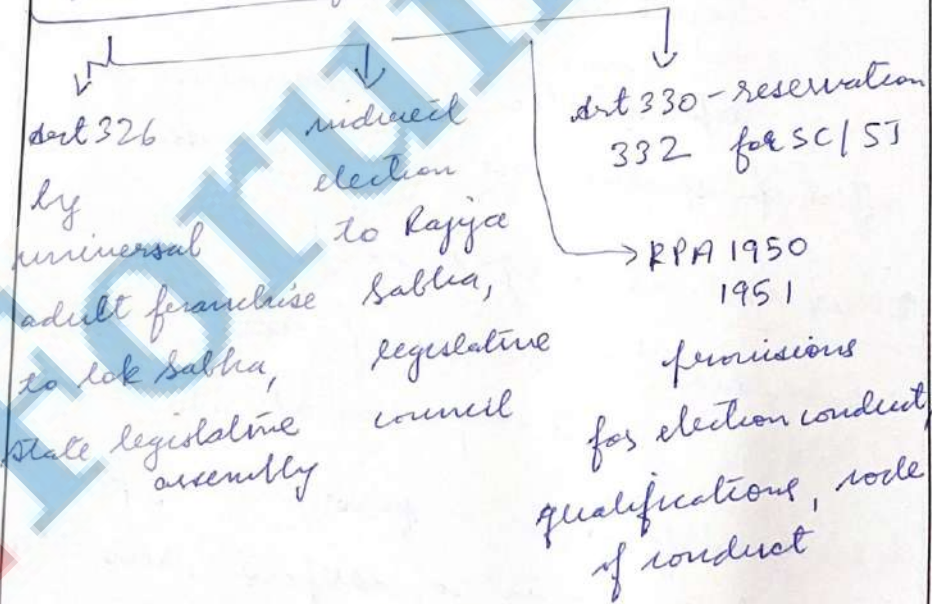 Art 326
by
universal
adult franchise
to Lok Sabha,
State legislative
assembly
indirect
election
to Rajya
Sabha,
legislative
council
Art 330 - reservation
332 for SC/ST
RPA 1950
1951
provisions
for election conduct,
qualifications, code
of conduct
Forum